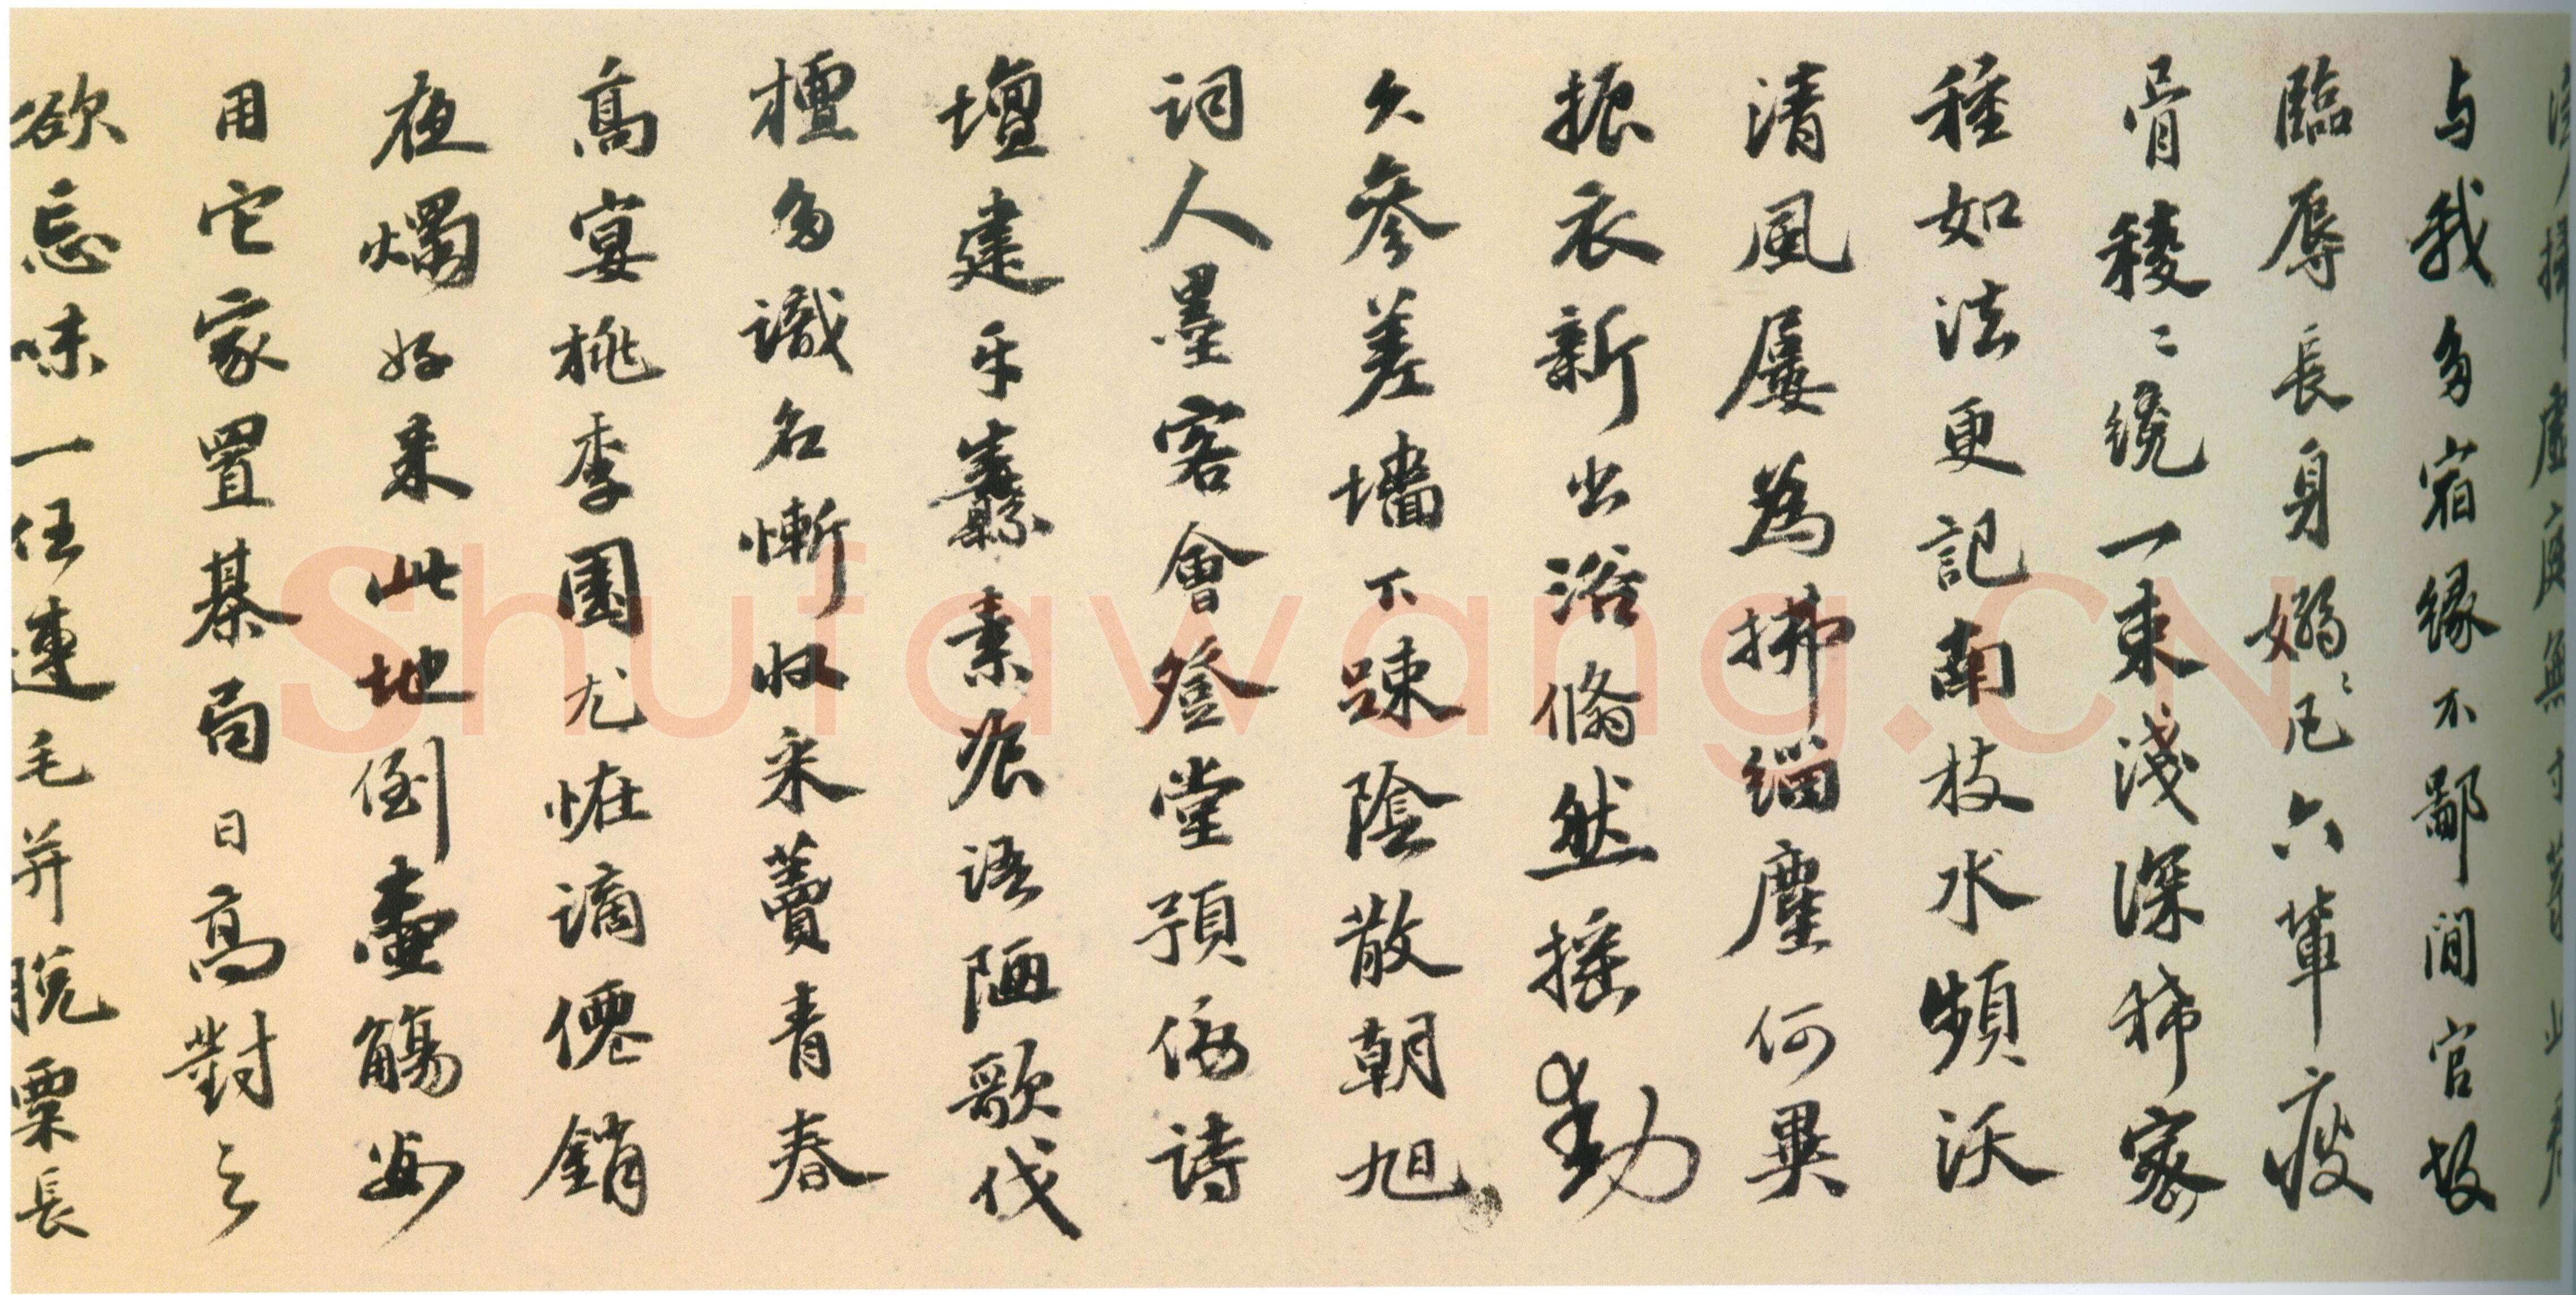 与我多宿緣不鄙閒官奴
臨辱長身嫋〻凡六輩瘦
骨稜〻纔一束淺深稀密
種如法更記南枝水頻沃
清風屢為拂緇塵何異
振衣新出浴翛然搖動
久參差墻下踈陰散朝旭
詞人墨客會登堂預係詩
壇建牙纛素炊語陋歌伐
檀多識名慚收采藚青春
高宴桃李園尤恠謫僊銷
夜燭好來此地倒壺觴安
用它家置棊局日高對之
欲忘味一任連毛并脫粟長
Shufawang.CN